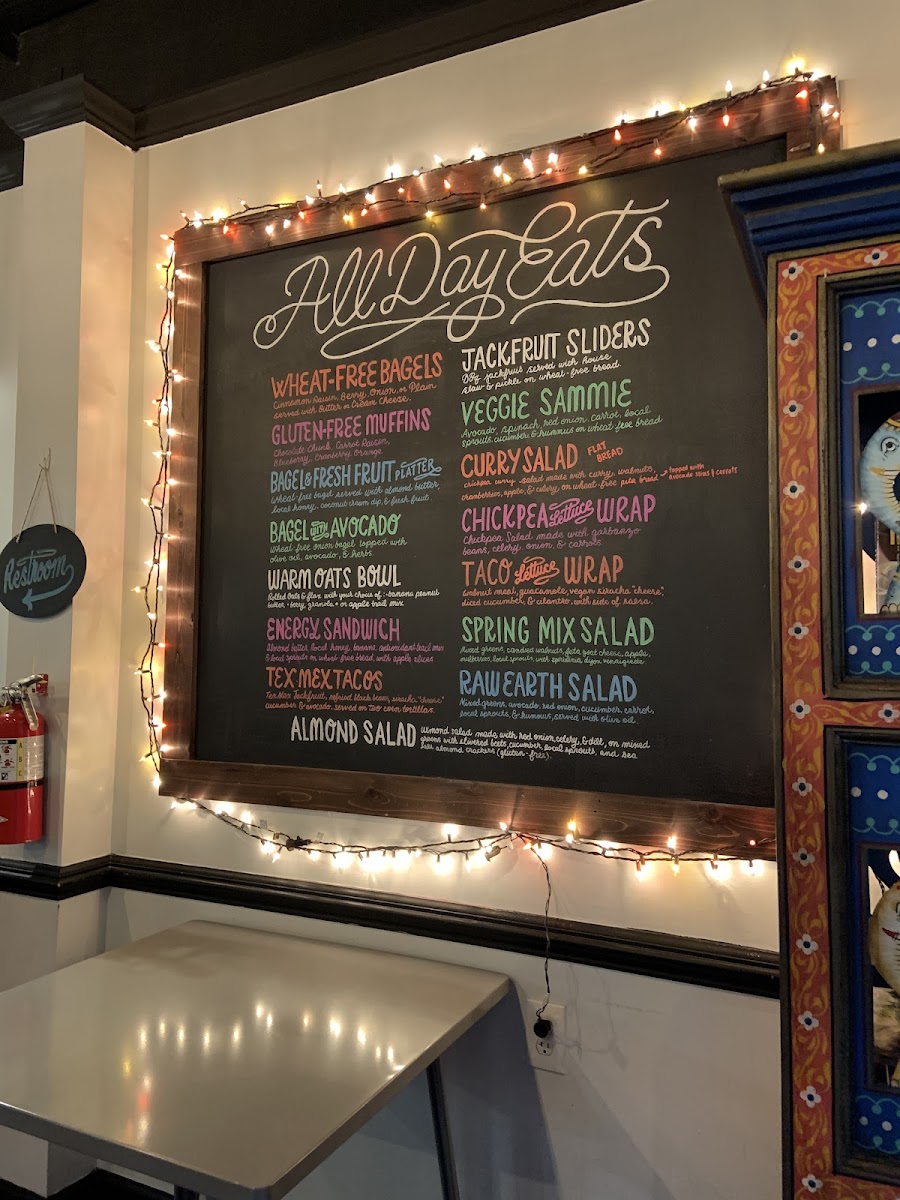 All Day Eats
WHEAT-FREE BAGELS
Cinnamon Raisin, Berry, Onion, or Plain
served with Butter or Cream Cheese.
GLUTEN-FREE MUFFINS
Chocolate Chunk, Carrot Raisin,
Blueberry, Cranberry Orange
BAGEL & FRESH FRUIT PLATTER
wheat-free bagel served with almond butter,
local honey, coconut cream dip, & fresh fruit.
BAGEL with AVOCADO
Wheat-free onion bagel topped with
olive oil, avocado, & herbs.
WARM OATS BOWL
Rolled Oats & flax with your choice of: banana peanut
butter • berry, granola • or apple trail mix.
ENERGY SANDWICH
Almond butter, local honey, banana, antioxidant trail mix
& local sprouts on wheat-free bread with apple slices
TEX MEX TACOS
Tex Mex Jackfruit, refried black beans, siracha, "cheese"
cucumber & avocado, served on two corn tortillas.
JACKFRUIT SLIDERS
BBQ jackfruit served with house
slaw & pickle on wheat-free bread.
VEGGIE SAMMIE
Avocado, spinach, red onion, carrot, local
sprouts, cucumber & hummus on wheat-free bread
CURRY SALAD FLAT
BREAD
chickpea curry salad made with curry, walnuts,
cranberries, apple, & celery on wheat-free pita bread → topped with
avocado slices & carrots
CHICKPEA Lettuce WRAP
Chickpea Salad made with garbanzo
beans, celery, onion, & carrots.
TACO Lettuce WRAP
Walnut meat, guacamole, vegan siracha "cheese",
diced cucumber, & cilantro, with side of salsa.
SPRING MIX SALAD
Mixed greens, candied walnuts, feta, goat cheese, apple,
local sprouts, with dijon vinaigrette.
RAW EARTH SALAD
Mixed greens, avocado, red onion, cucumber, carrot,
local sprouts, & hummus, served with olive oil.
ALMOND SALAD almond salad made with red onion, celery, & dill, on mixed
greens with slivered beets, cucumber, local sprouts, and sea
salt almond crackers (gluten-free).
Restroom
A B C